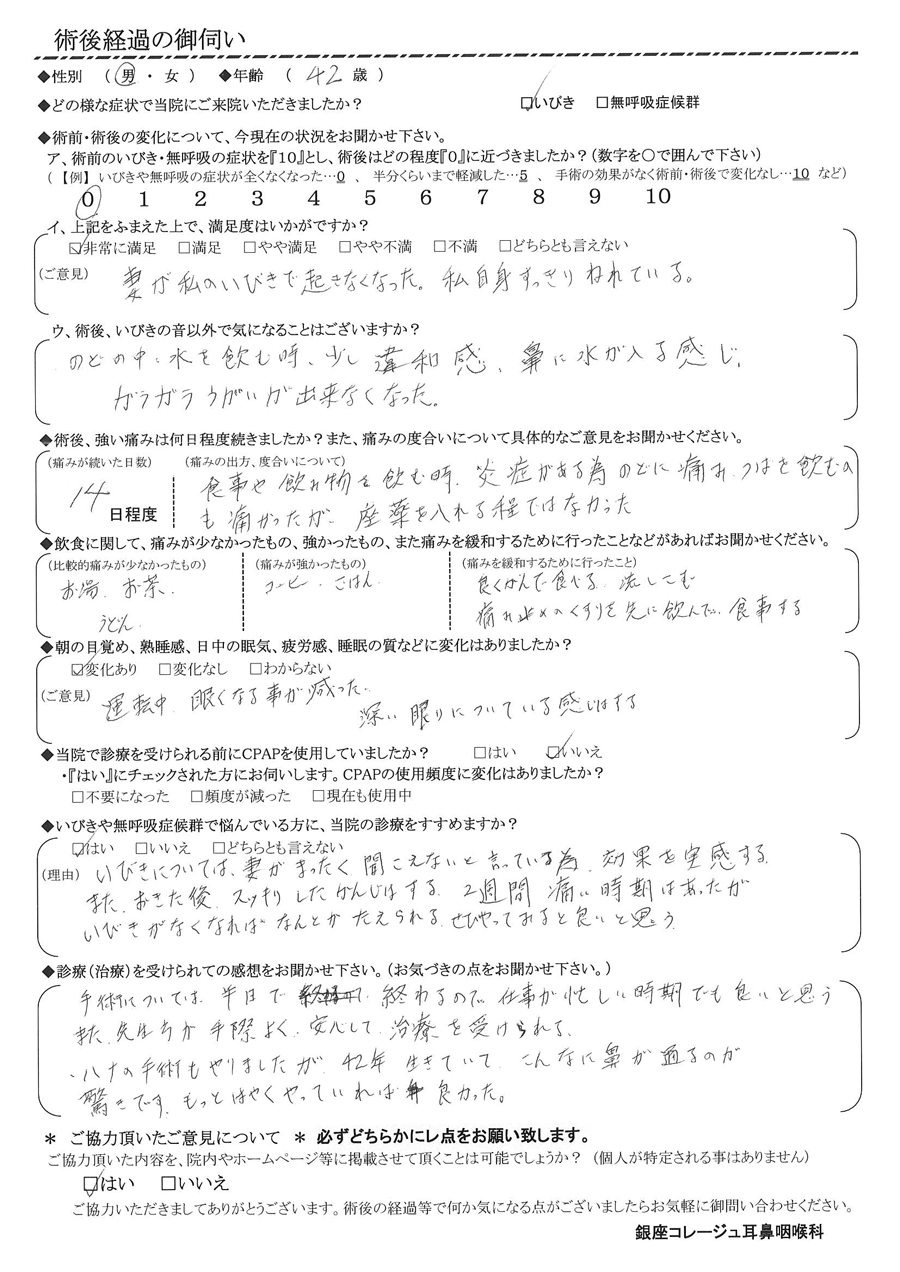 術後経過の御伺い
◆性別 ( 男 ・ 女 ) ◆年齢 ( 42 歳 )
◆どの様な症状で当院にご来院いただきましたか? ☑いびき □無呼吸症候群
◆術前・術後の変化について、今現在の状況をお聞かせ下さい。
ア、術前のいびき・無呼吸の症状を『10』とし、術後はどの程度『0』に近づきましたか?(数字を〇で囲んで下さい)
(【例】いびきや無呼吸の症状が全くなくなった…0 、 半分くらいまで軽減した…5 、 手術の効果がなく術前・術後で変化なし…10 など)
0 1 2 3 4 5 6 7 8 9 10
イ、上記をふまえた上で、満足度はいかがですか?
☑非常に満足 □満足 □やや満足 □やや不満 □不満 □どちらとも言えない
(ご意見) 妻が私のいびきで起きなくなった。私自身すっきりねれている。
ウ、術後、いびきの音以外で気になることはございますか?
のどの中に水を飲む時、少し違和感、鼻に水が入る感じ、
ガラガラうがいが出来なくなった。
◆術後、強い痛みは何日程度続きましたか?また、痛みの度合いについて具体的なご意見をお聞かせください。
(痛みが続いた日数) (痛みの出方、度合いについて)
14日程度
食事や飲み物を飲む時、炎症がある為のどに痛み、つばを飲むの
も痛かったが、座薬を入れる程ではなかった
◆飲食に関して、痛みが少なかったもの、強かったもの、また痛みを緩和するために行ったことなどがあればお聞かせください。
(比較的痛みが少なかったもの) (痛みが強かったもの) (痛みを緩和するために行ったこと)
お湯、お茶、 コーヒー、ごはん 良くかんで食べる、流しこむ
うどん 痛み止めのくすりを先に飲んで、食事する
◆朝の目覚め、熟睡感、日中の眠気、疲労感、睡眠の質などに変化はありましたか?
☑変化あり □変化なし □わからない
(ご意見) 運転中、眠くなる事が減った、
深い眠りについている感じはする
◆当院で診療を受けられる前にCPAPを使用していましたか? □はい ☑いいえ
・『はい』にチェックされた方にお伺いします。CPAPの使用頻度に変化はありましたか?
□不要になった □頻度が減った □現在も使用中
◆いびきや無呼吸症候群で悩んでいる方に、当院の診療をすすめますか?
☑はい □いいえ □どちらとも言えない
(理由) いびきについては、妻がまったく聞こえないと言っている為、効果を実感する。
また、おきた後、スッキリしたかんじはする。2週間痛い時期はあったが
いびきがなくなればなんとかたえられる。ぜひやってみると良いと思う。
◆診療(治療)を受けられての感想をお聞かせ下さい。(お気づきの点をお聞かせ下さい。)
手術については、半日で終わるので、仕事が忙しい時期でも良いと思う
また、先生方が手際よく、安心して、治療を受けられる。
・ハナの手術もやりましたが、42年生きていて、こんなに鼻が通るのが
驚きです。もっとはやくやっていれば良かった。
＊ ご協力頂いたご意見について ＊ 必ずどちらかにレ点をお願い致します。
ご協力頂いた内容を、院内やホームページ等に掲載させて頂くことは可能でしょうか? (個人が特定される事はありません)
☑はい □いいえ
ご協力いただきましてありがとうございます。術後の経過等で何か気になる点がございましたらお気軽に御問い合わせください。
銀座コレージュ耳鼻咽喉科